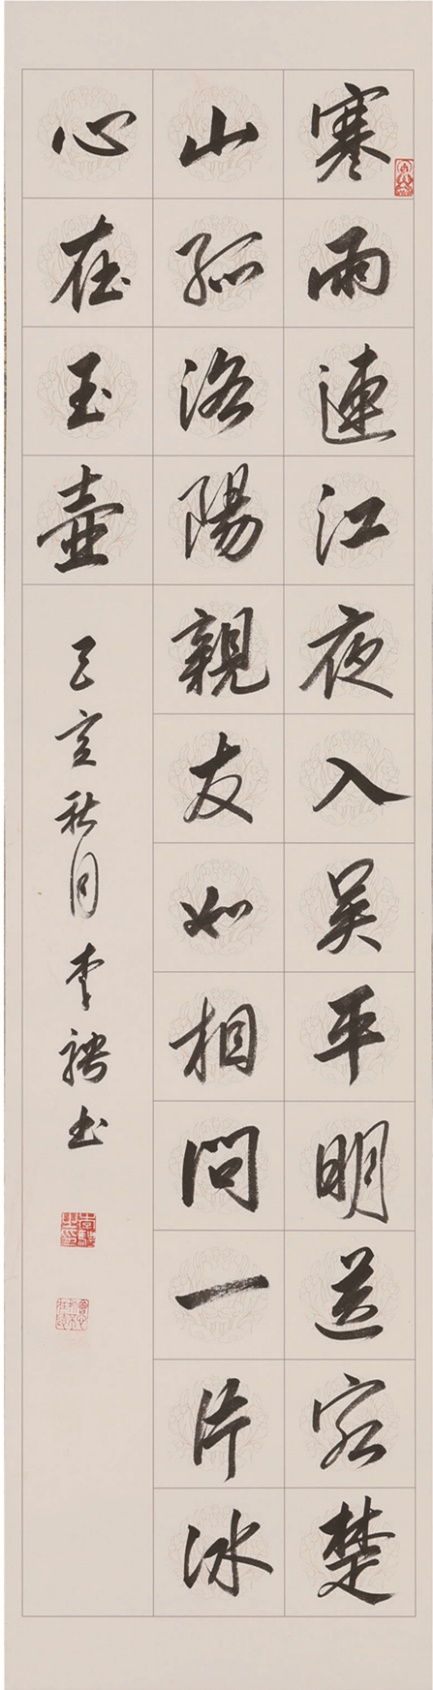 寒雨連江夜入吳平明送客楚
山孤洛陽親友如相問一片冰
心在玉壺
己亥秋月李书